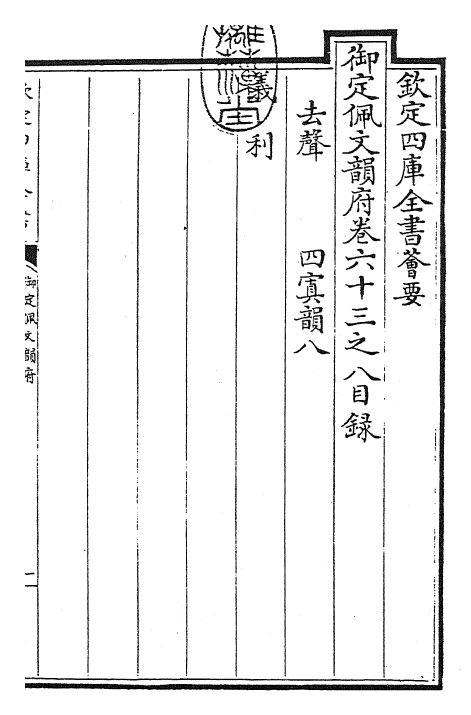 欽定四庫全書薈要
御定佩文韻府卷六十三之八目錄
去聲　四寘韻八
利
御定佩文韻府
一